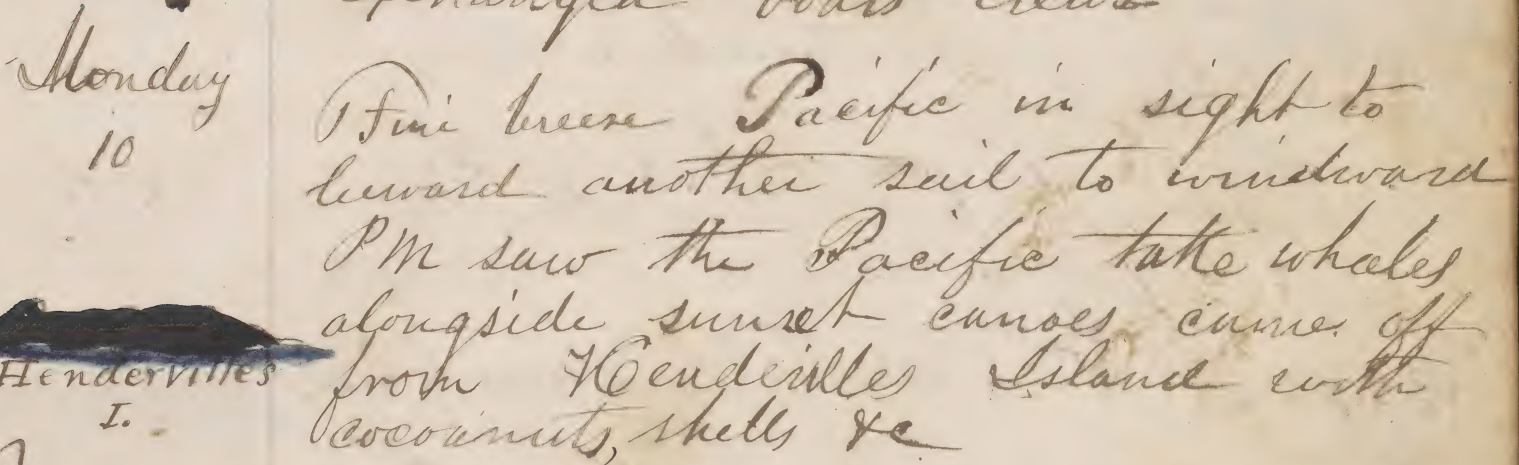 exchanged boats crews
Monday
10
Fine breeze Pacific in sight to
leeward another sail to windward
PM saw the Pacific take whales
alongside sunset canoes came off
from Hendervilles Island with
cocoanuts, shells &c
Hendervilles
I.